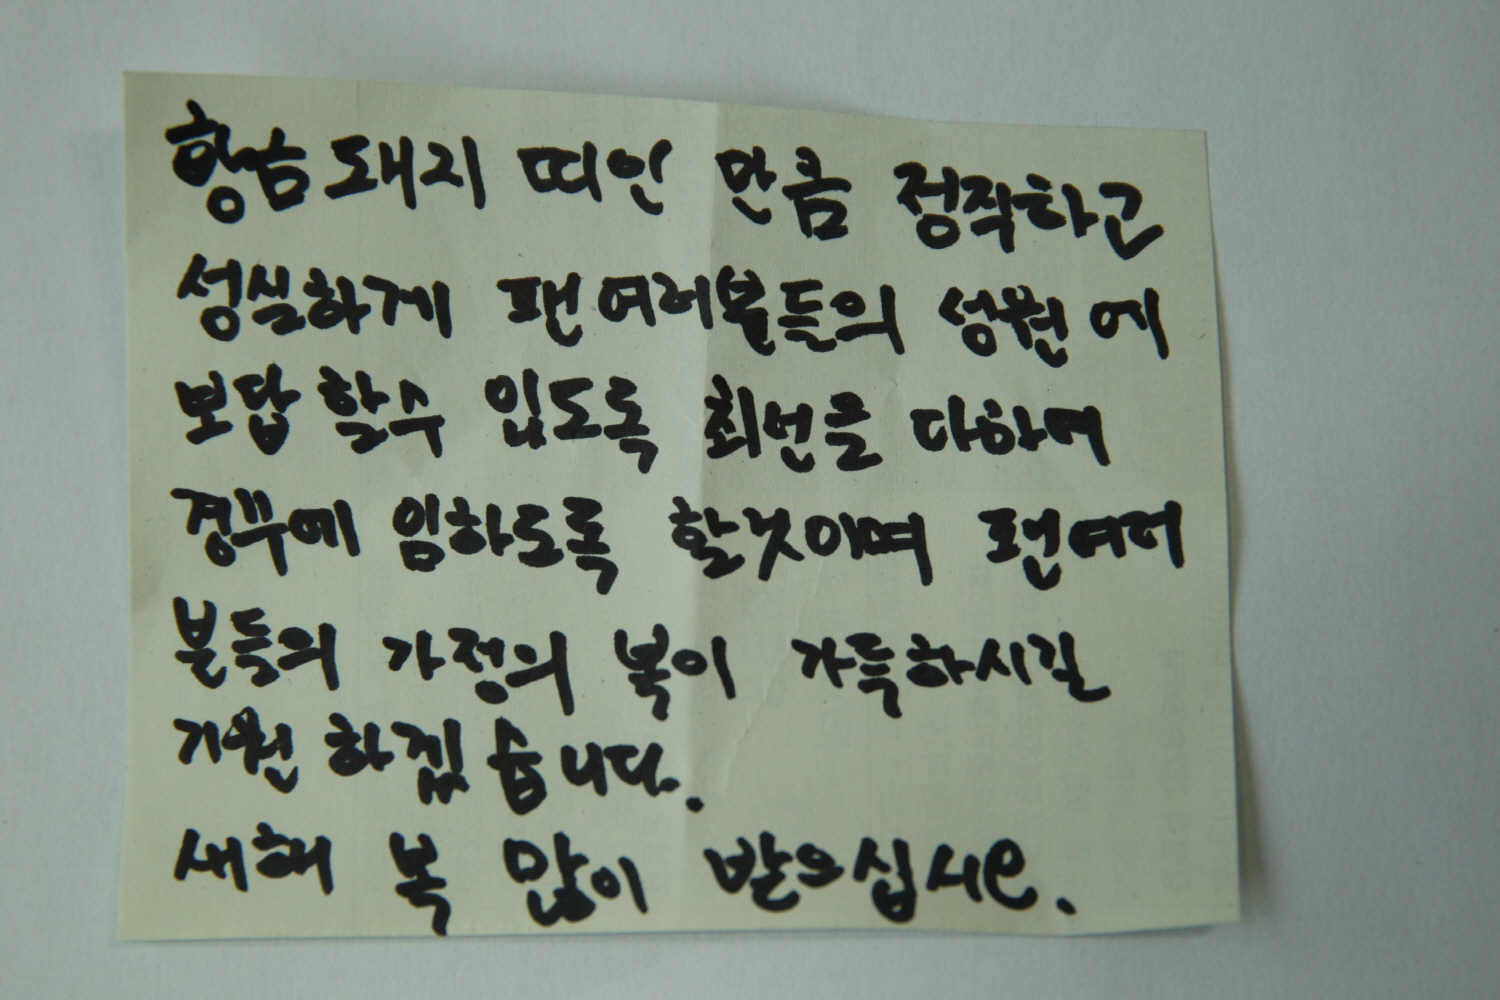 황금돼지 띠인 만큼 정직하고
성실하게 팬여러분들의 성원에
보답 할수 있도록 최선을 다하여
경주에 임하도록 할것이며 팬여러
분들의 가정의 복이 가득하시길
기원 하겠습니다.
새해 복 많이 받으십시요.